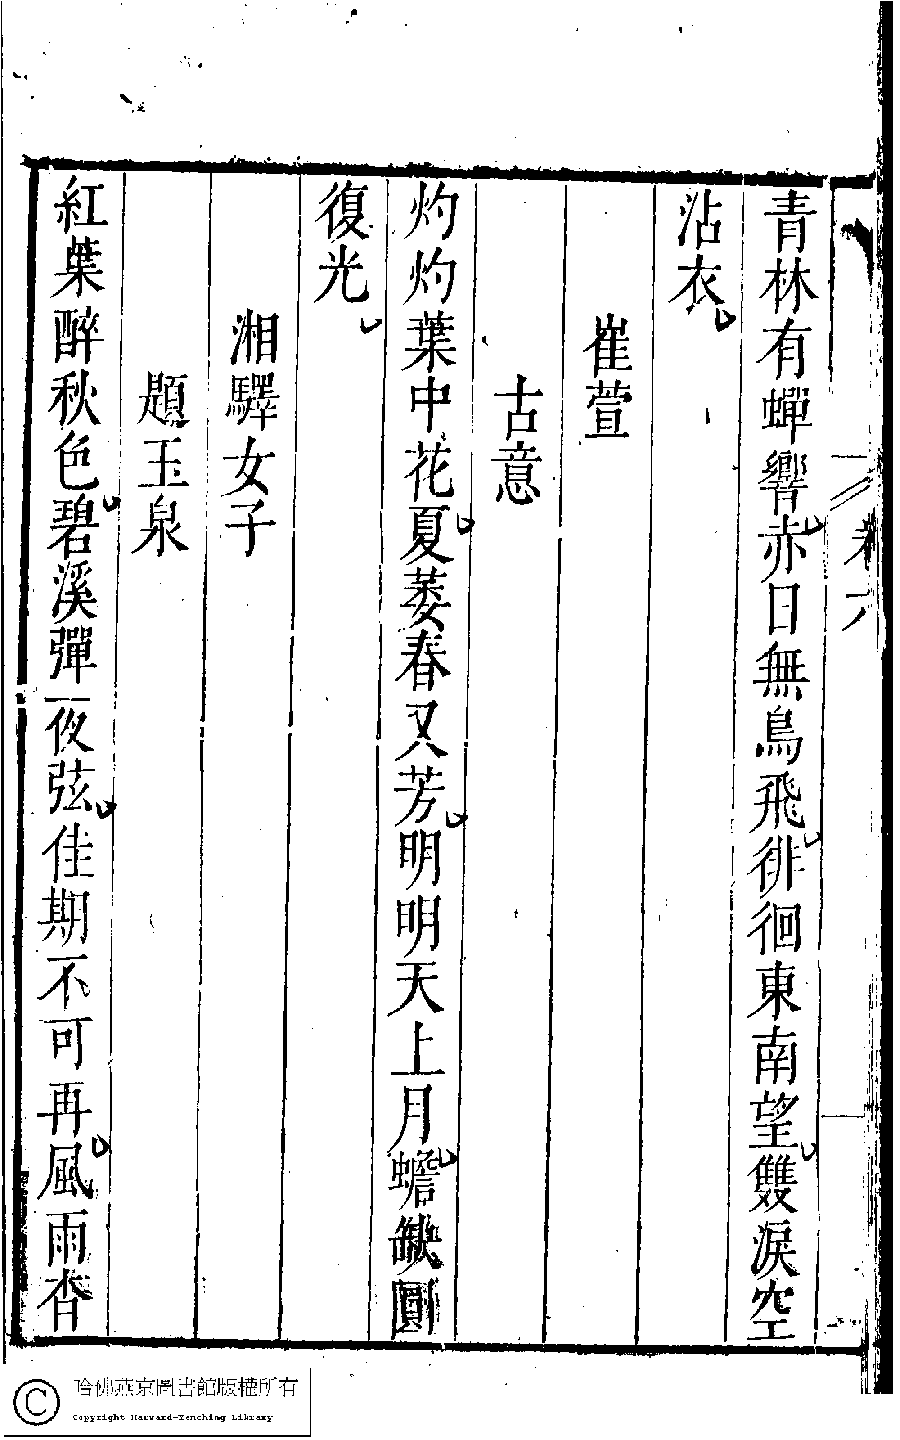 青林有蟬響赤日無鳥飛徘徊東南望雙淚空
沾衣
崔萱
古意
灼灼葉中花夏萎春又芳明明天上月蟾缺圓
復光
湘驛女子
題玉泉
紅葉醉秋色碧溪彈一夜弦佳期不可再風雨杳
哈佛燕京圖書館版權所有
Copyright Harvard-Yenching Library